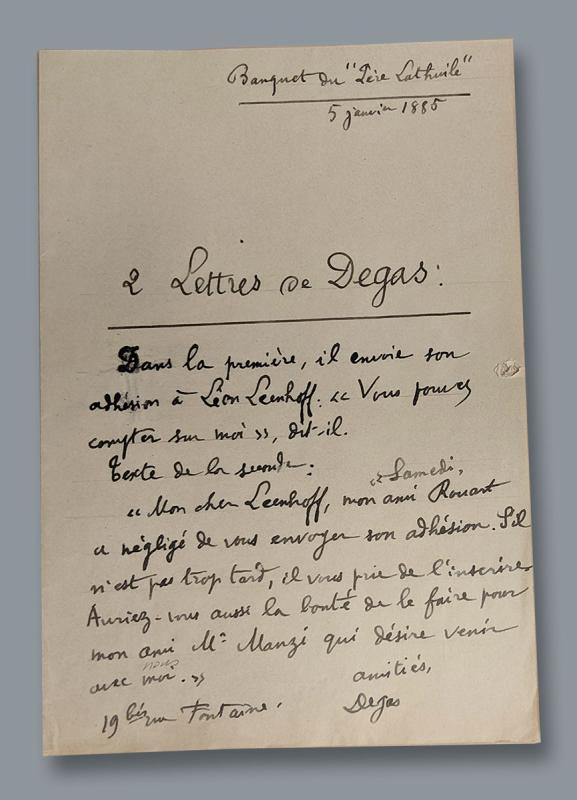 Banquet du "Père Lathuile"
5 janvier 1885
2 Lettres de Degas :
Dans la première, il envoie son
adhésion à Léon Leenhoff : << Vous pouvez
compter sur moi >>, dit-il.
Texte de la seconde :
<< Samedi,
<< Mon cher Leenhoff, mon ami Rouart
a négligé de vous envoyer son adhésion. S'il
n'est pas trop tard, il vous prie de l'inscrire.
Auriez-vous aussi la bonté de le faire pour
mon ami Mr Manzi qui désire venir
nous
avec moi. >>
amitiés,
Degas
19 bis rue Fontaine.